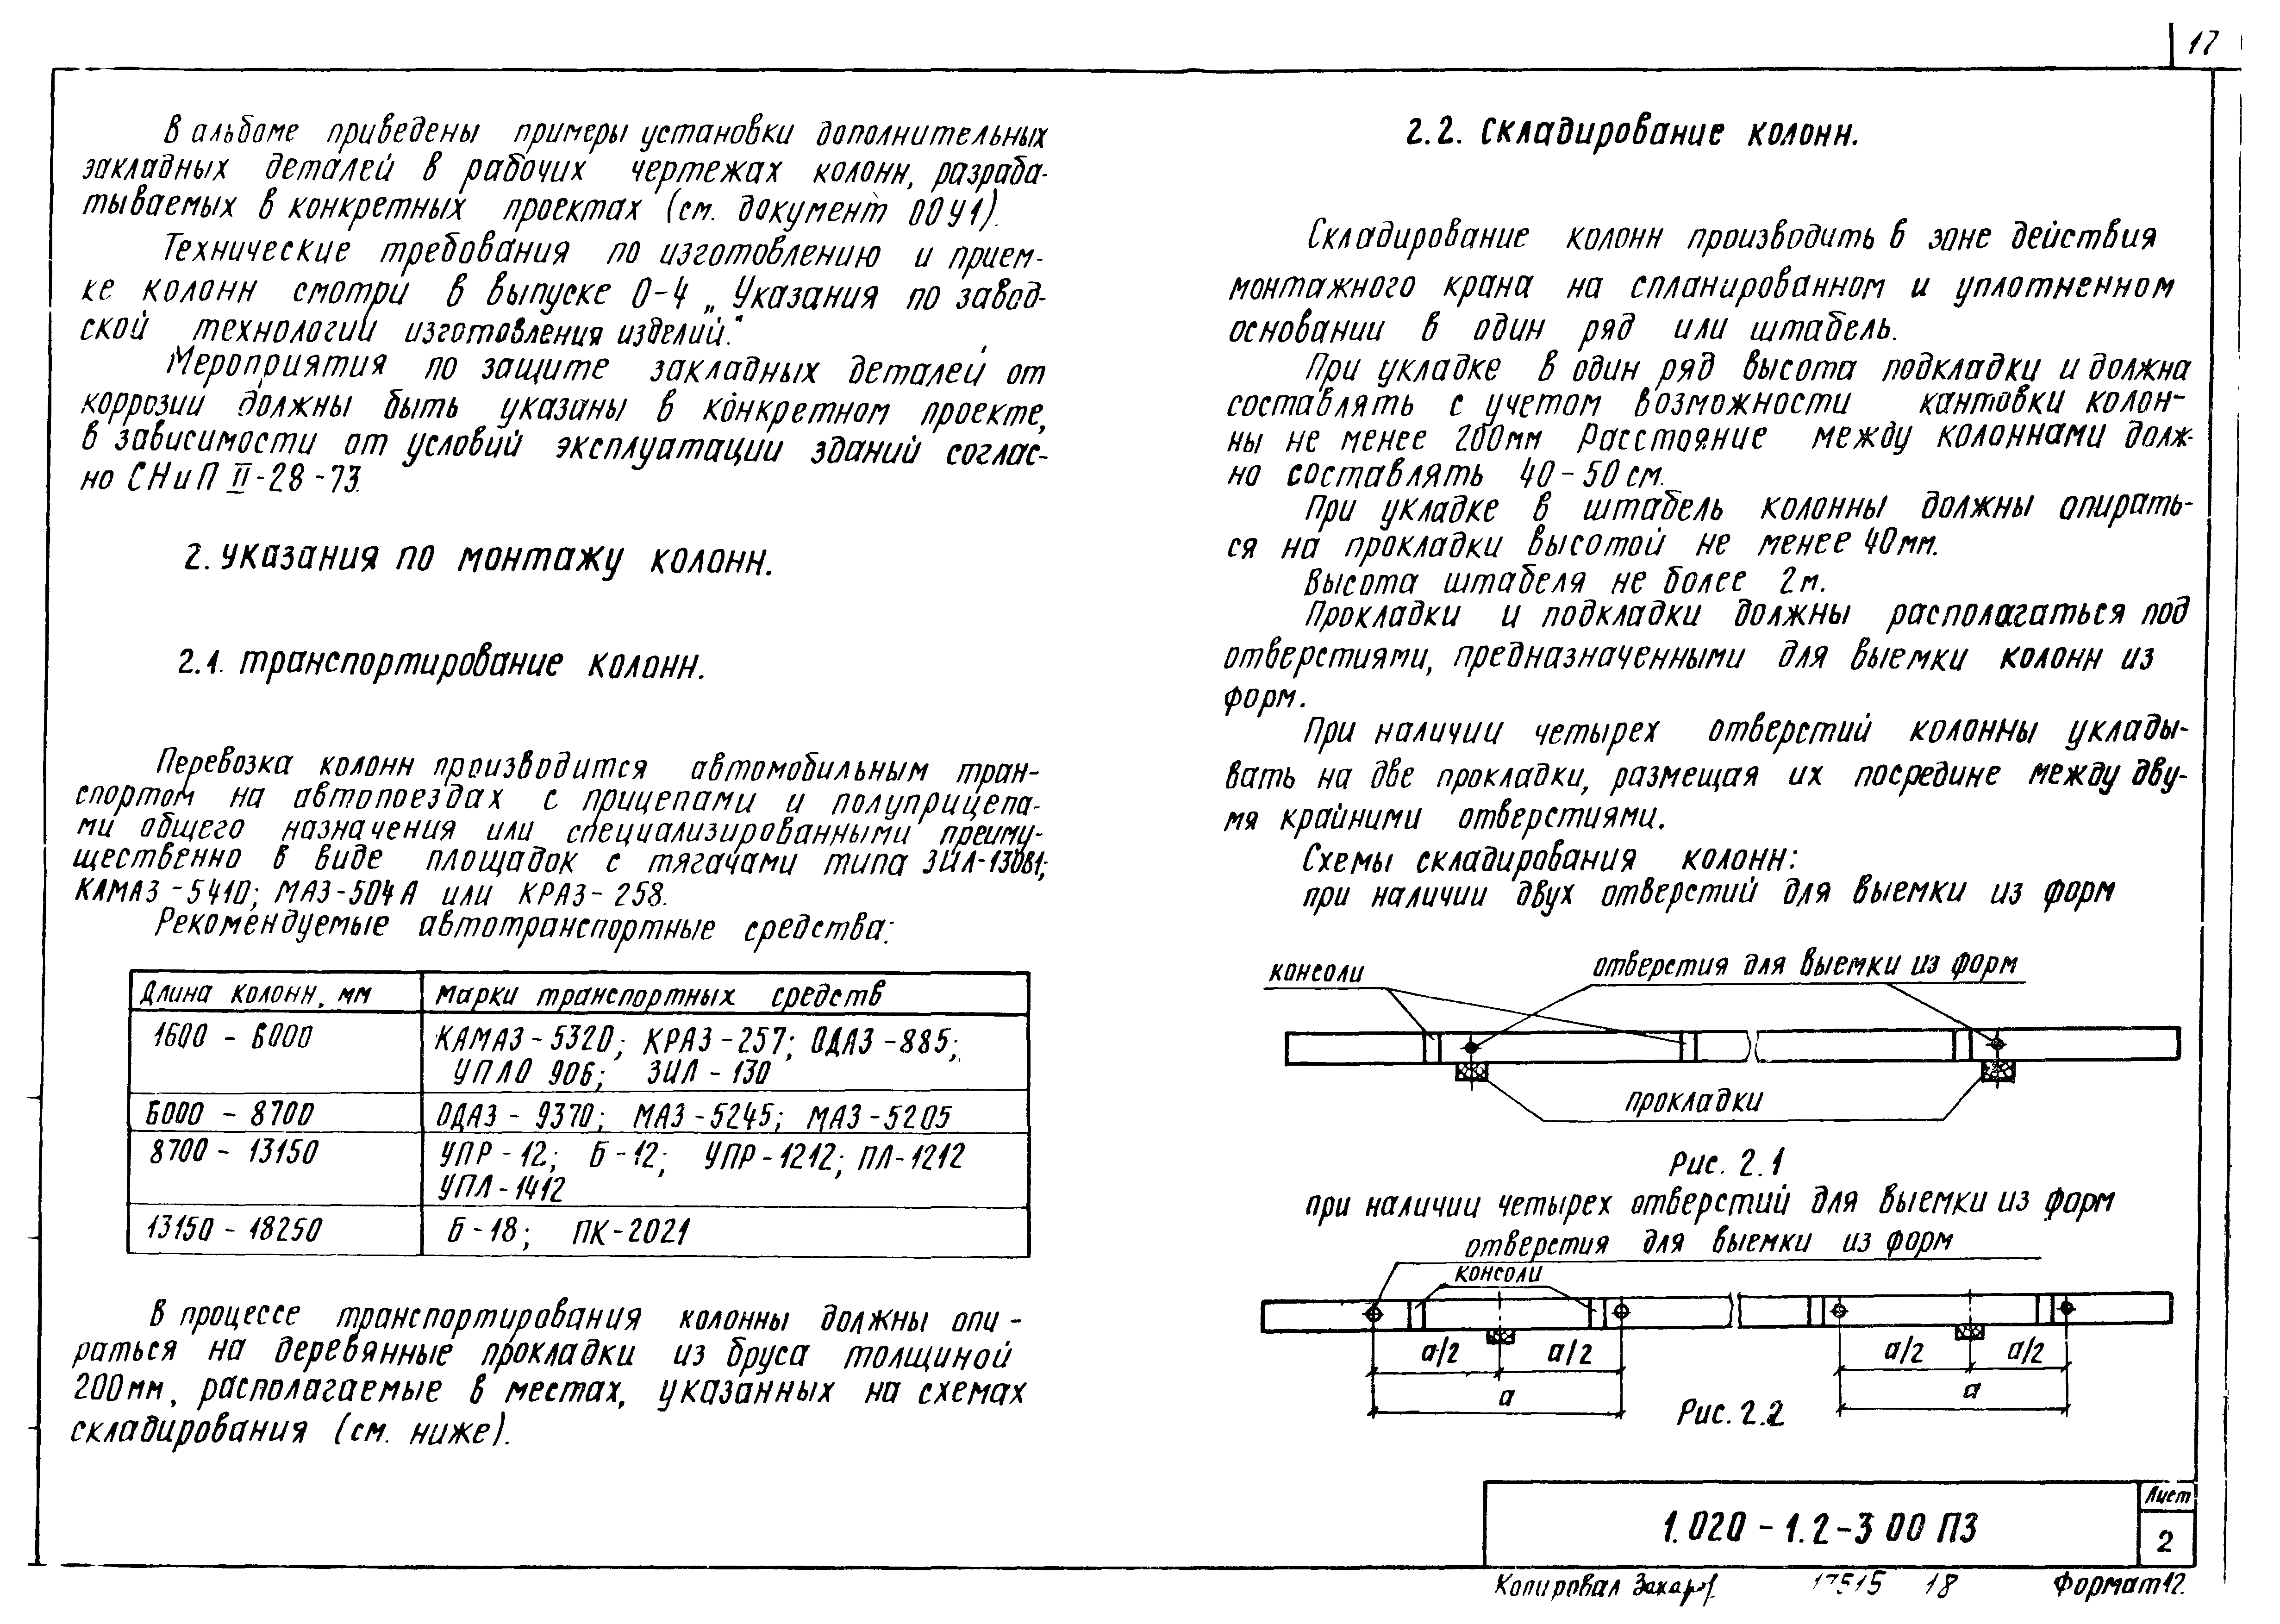 17
В альбоме приведены примеры установки дополнительных
закладных деталей в рабочих чертежах колонн, разраба-
тываемых в конкретных проектах (см. документ 00У1).
Технические требования по изготовлению и прием-
ке колонн смотри в выпуске 0-4 „Указания по завод-
ской технологии изготовления изделий."
Мероприятия по защите закладных деталей от
коррозии должны быть указаны в конкретном проекте,
в зависимости от условий эксплуатации зданий соглас-
но СНиП II-28-73.
2. Указания по монтажу колонн.
2.1. Транспортирование колонн.
Перевозка колонн производится автомобильным тран-
спортом на автопоездах с прицепами и полуприцепа-
ми общего назначения или специализированными преиму-
щественно в виде площадок с тягачами типа ЗИЛ-130В1;
КАМАЗ-5410; МАЗ-504А или КРАЗ-258.
Рекомендуемые автотранспортные средства:
Длина колонн, мм	Марки транспортных средств
1600 - 6000	КАМАЗ-5320; КРАЗ-257; ОДАЗ-885;
УПЛО 906; ЗИЛ-130
6000 - 8700	ОДАЗ-9370; МАЗ-5245; МАЗ-5205
8700 - 13150	УПР-12; Б-12; УПР-1212; ПЛ-1212
УПЛ-1412
13150 - 18250	Б-18; ПК-2021
В процессе транспортирования колонны должны опи-
раться на деревянные прокладки из бруса толщиной
200мм, располагаемые в местах, указанных на схемах
складирования (см. ниже).
2.2. Складирование колонн.
Складирование колонн производить в зоне действия
монтажного крана на спланированном и уплотненном
основании в один ряд или штабель.
При укладке в один ряд высота подкладки и должна
составлять с учетом возможности кантовки колон-
ны не менее 200мм Расстояние между колоннами долж-
но составлять 40-50см.
При укладке в штабель колонны должны опирать-
ся на прокладки высотой не менее 40мм.
Высота штабеля не более 2м.
Прокладки и подкладки должны располагаться под
отверстиями, предназначенными для выемки колонн из
форм.
При наличии четырех отверстий колонны уклады-
вать на две прокладки, размещая их посредине между дву-
мя крайними отверстиями.
Схемы складирования колонн:
при наличии двух отверстий для выемки из форм
консоли	отверстия для выемки из форм
прокладки
Рис. 2.1
при наличии четырех отверстий для выемки из форм
отверстия для выемки из форм
консоли
а/2	а/2	а/2	а/2
а	а
Рис. 2.2
1.020-1.2-3 00 ПЗ
Лист
2
Копировал Захар 17515 18 Формат12.